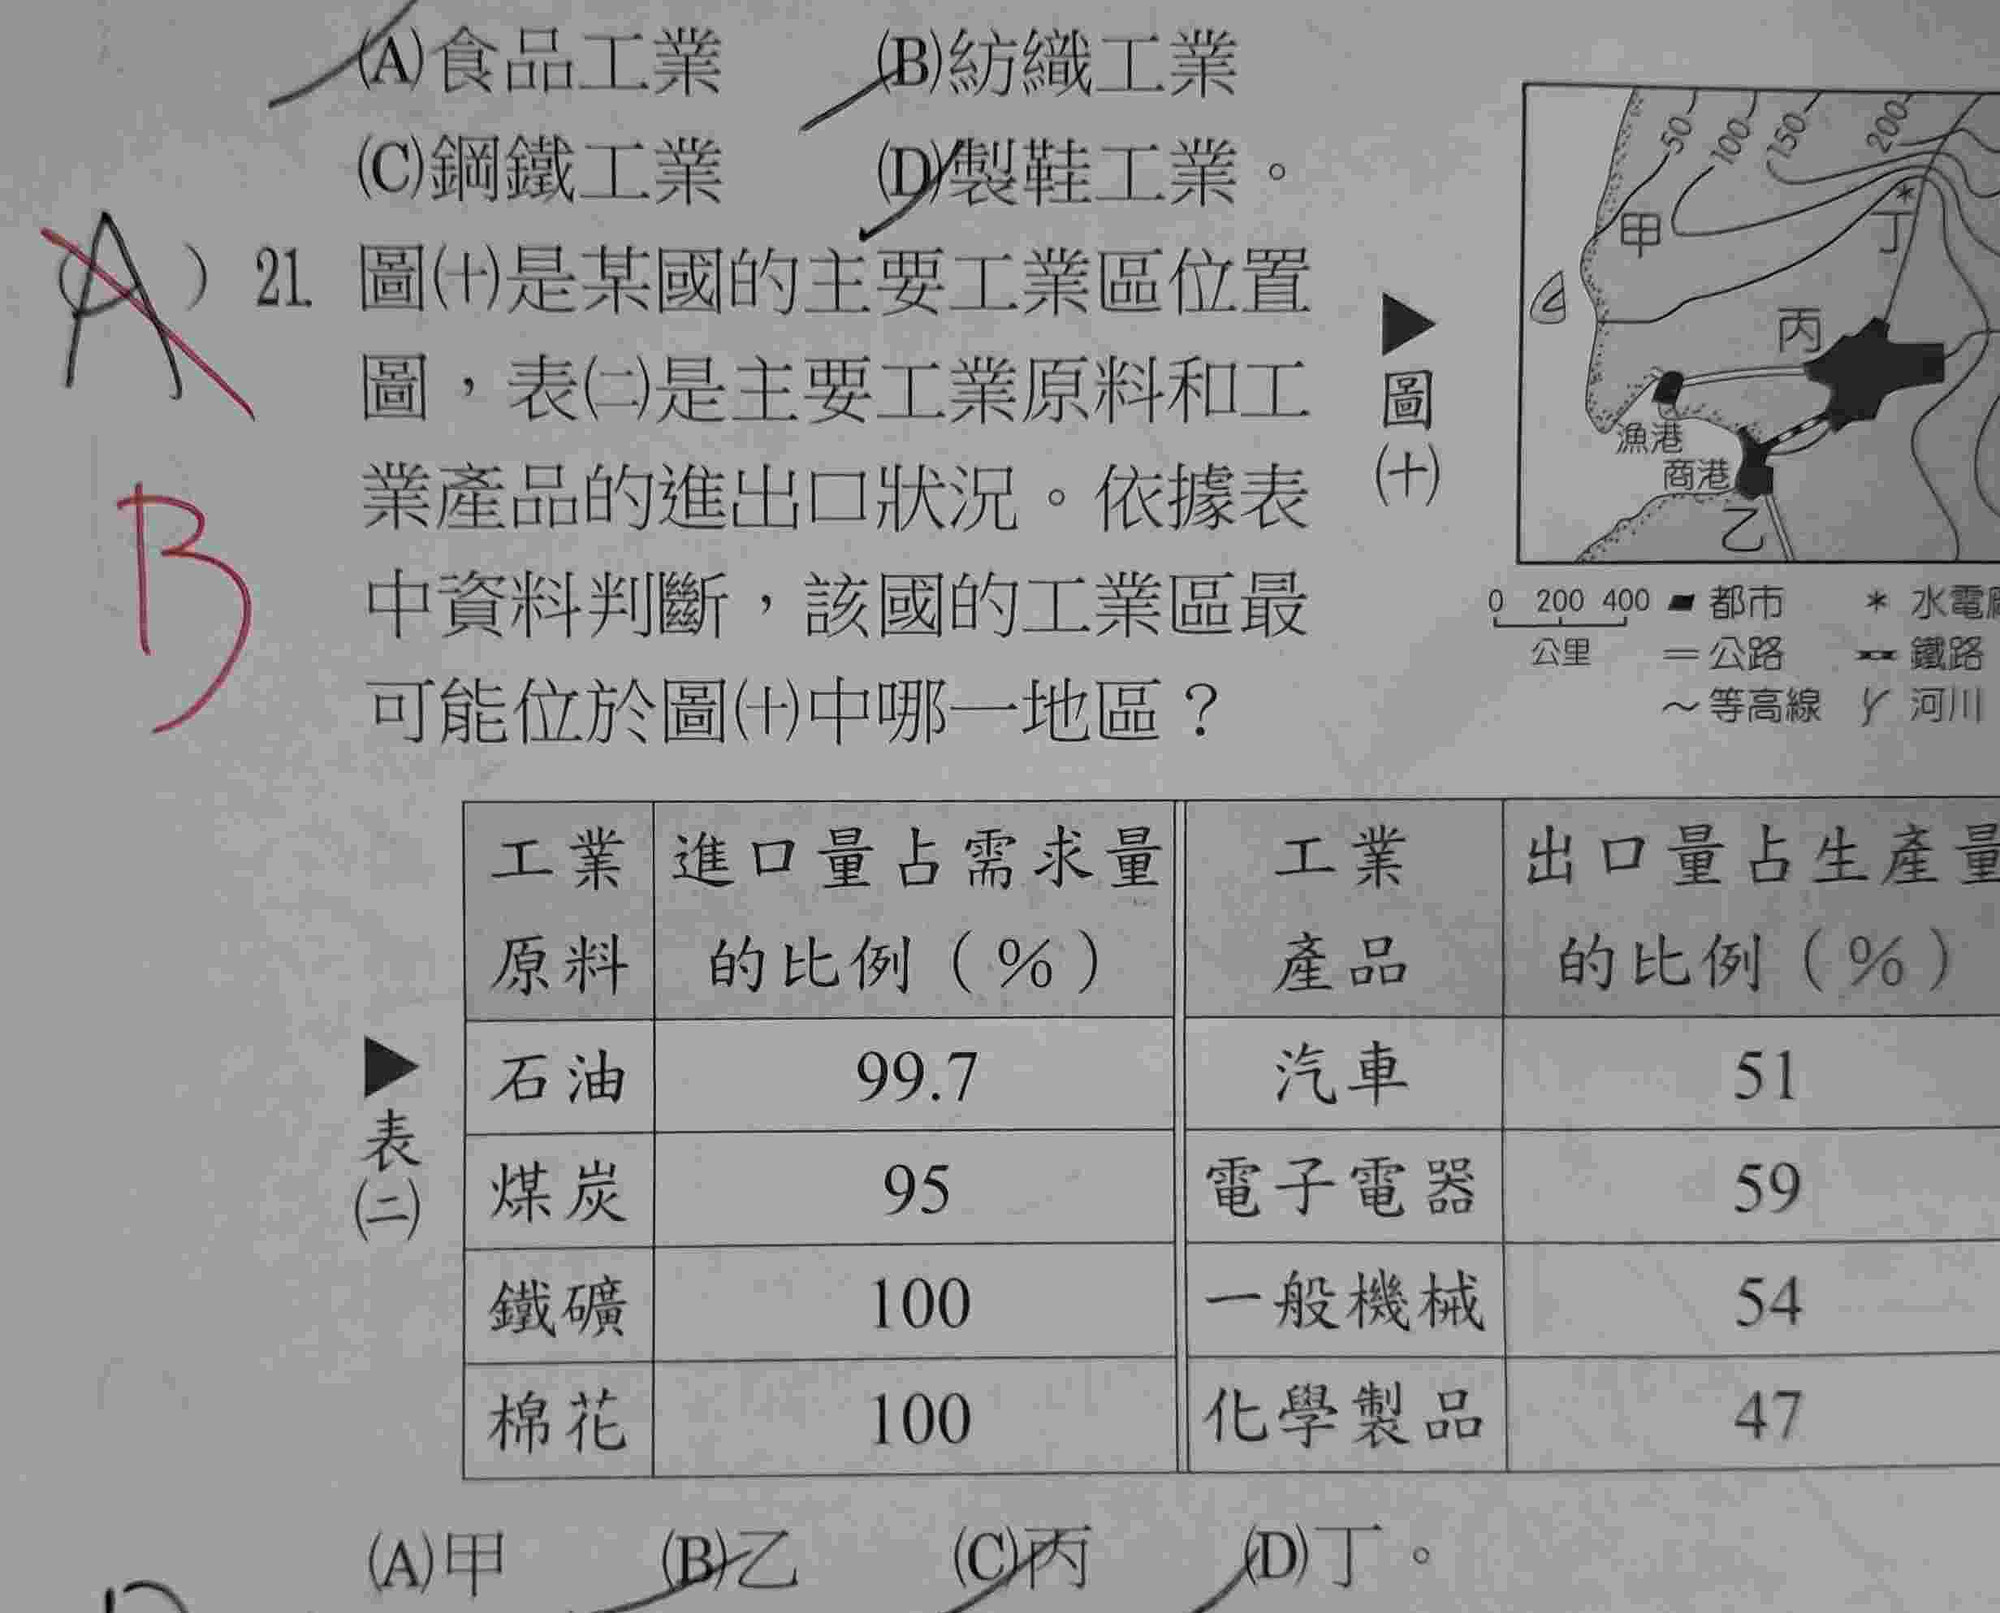 (A)食品工業 (B)紡織工業
(C)鋼鐵工業 (D)製鞋工業。
(A) 21. 圖(十)是某國的主要工業區位置
圖，表(二)是主要工業原料和工
業產品的進出口狀況。依據表
中資料判斷，該國的工業區最
可能位於圖(十)中哪一地區？
B
▶圖(十)
50 100 150 200
甲 丁
丙
漁港
商港
乙
0 200 400 都市 * 水電廠
公里 公路 鐵路
等高線 河川
▶表(二)
工業原料 進口量占需求量的比例（%） 工業產品 出口量占生產量的比例（%）
石油 99.7 汽車 51
煤炭 95 電子電器 59
鐵礦 100 一般機械 54
棉花 100 化學製品 47
(A)甲 (B)乙 (C)丙 (D)丁。